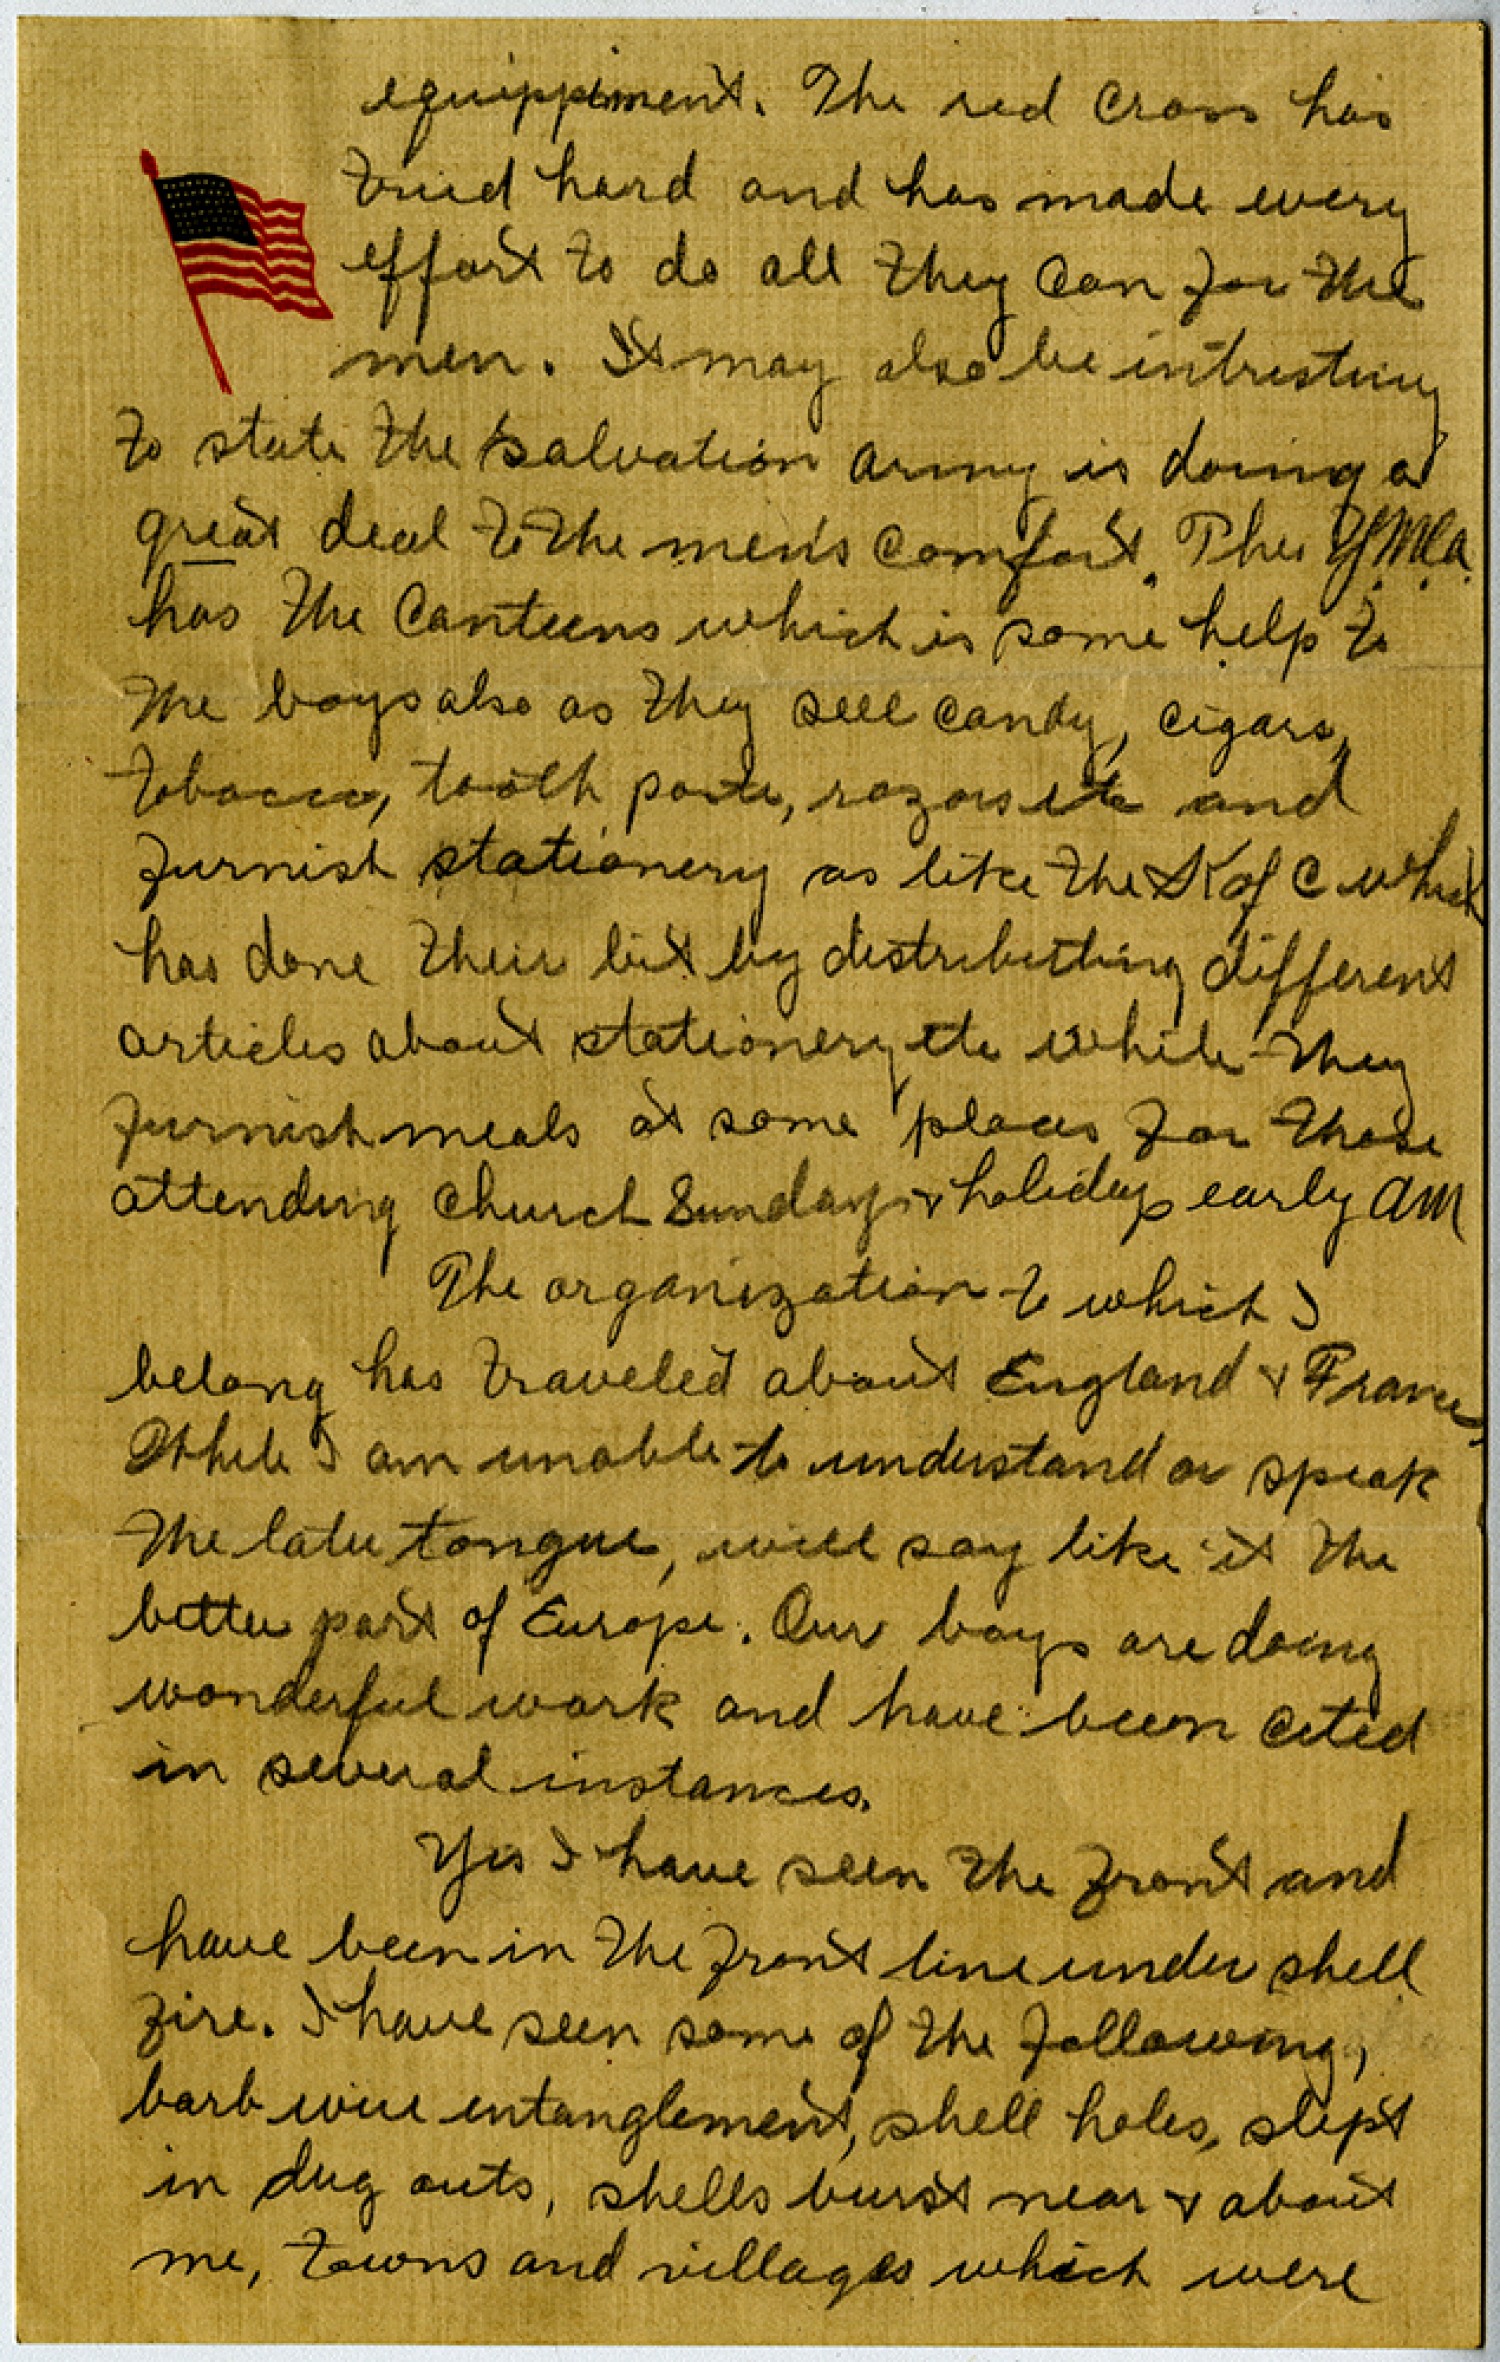 equippiment. The red Cross has
tried hard and has made every
effort to do all they can for the
men. It may also be intresting
to state the Salvation army is doing a
great deal to the men's comfort. The Y.M.C.A.
has the Canteens which is some help to
the boys also as they sell candy, cigars,
tobacco, tooth paste, razors etc and
furnish stationery as like the K of C which
has done their bit by distributting different
articles about stationery etc while they
furnish meals at some places for those
attending Church Sundays & holidays early AM
The organization to which I
belong has traveled about England & France,
While I am unable to understand or speak
the later tongue, will say like it the
better part of Europe. Our boys are doing
wonderful work and have been cited
in several instances.
Yes I have seen the front and
have been in the front line under shell
fire. I have seen some of the following,
barb wire entanglement, shell holes, slept
in dug outs, shells burst near & about
me, towns and villages which were